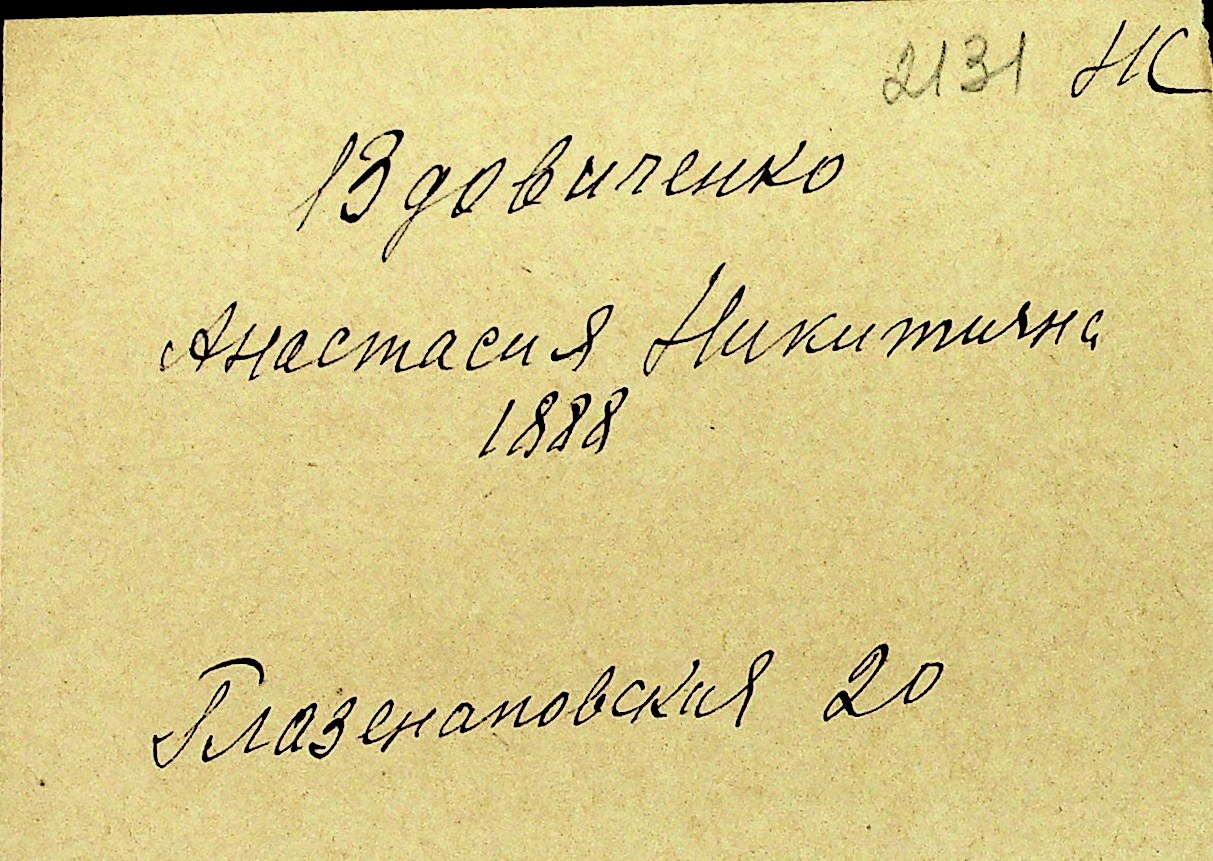 2131 НС
Вдовиченко
Анастасия Никитична
1888
Глазенаповская 20